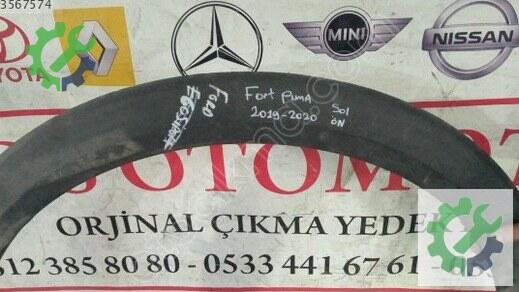 3567574
TOYOTA
MINI
NISSAN
Ford
Fort puma
2019-2020
Sol
ÖN
OTOMOT
ORJİNAL ÇIKMA YEDEK
812 385 80 80 - 0533 441 67 61